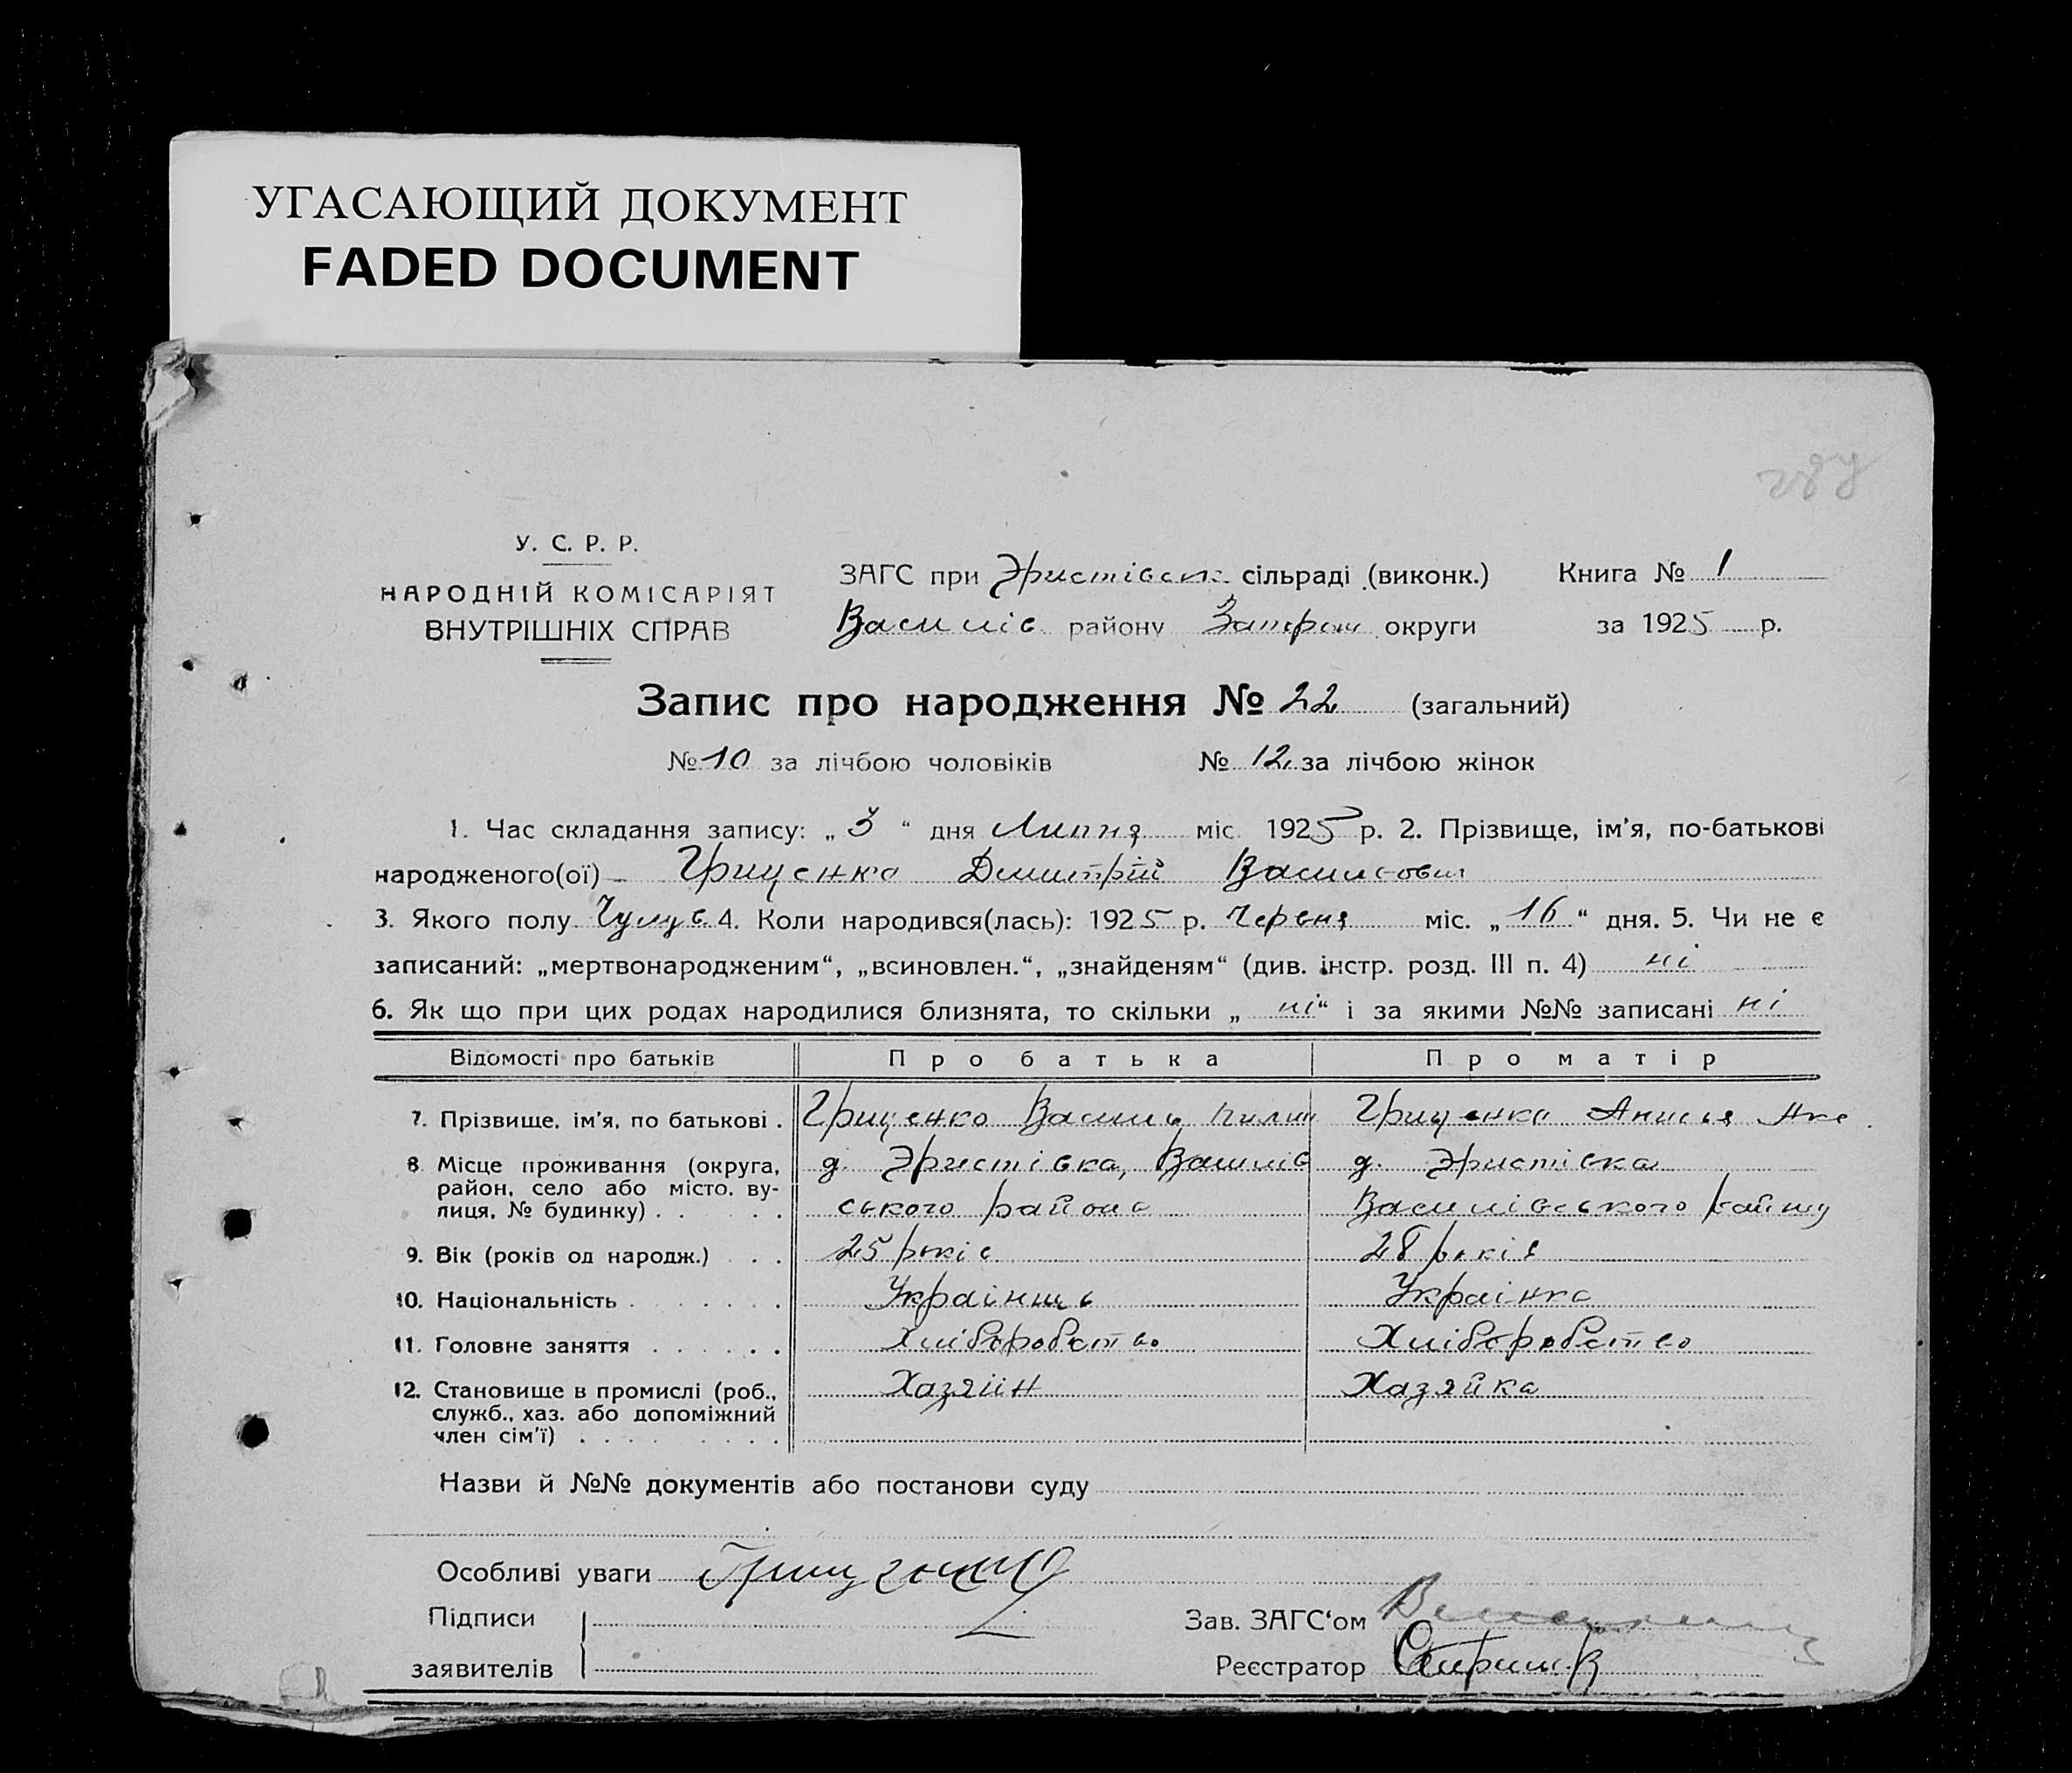 УГАСАЮЩИЙ ДОКУМЕНТ
FADED DOCUMENT
У. С. Р. Р.
НАРОДНІЙ КОМІСАРІЯТ
ВНУТРІШНІХ СПРАВ
ЗАГС при Эристівськ. сільраді (виконк.)
Василів району Запорож округи
Книга № 1
за 1925 р.
Запис про народження № 22 (загальний)
№ 10 за лічбою чоловіків № 12 за лічбою жінок
1. Час складання запису: „ 3 “ дня Липня міс 1925 р. 2. Прізвище, ім'я, по-батькові
народженого(ої) Грищенко Дмитрій Василович
3. Якого полу 4. Коли народився(лась): 1925 р. Червня міс. „ 16 “ дня. 5. Чи не є
записаний: „мертвонародженим“, „всиновлен.“, „знайденям“ (див. інстр. розд. III п. 4) ні
6. Як що при цих родах народилися близнята, то скільки „ ні “ і за якими №№ записані ні
Відомості про батьків Про батька Про матір
7. Прізвище, ім'я, по батькові . Грищенко Василь Пилип Грищенко Анисья
8 Місце проживання (округа, д. Эристівка, Василів д. Эристівка
район, село або місто. ву-
лиця, № будинку) . . . . ського района Василівського району
9. Вік (років од народж.) . . . 25 років 28 років
10. Національність . . . . . . . Українець Українка
11. Головне заняття . . . . . . Хліборобство Хліборобство
12. Становище в промислі (роб., Хазяїн Хазяйка
служб., хаз. або допоміжний
член сім'ї) . . . . . . . . .
Назви й №№ документів або постанови суду
Особливі уваги Грищенко
Підписи
заявителів
Зав. ЗАГС‘ом
Реєстратор